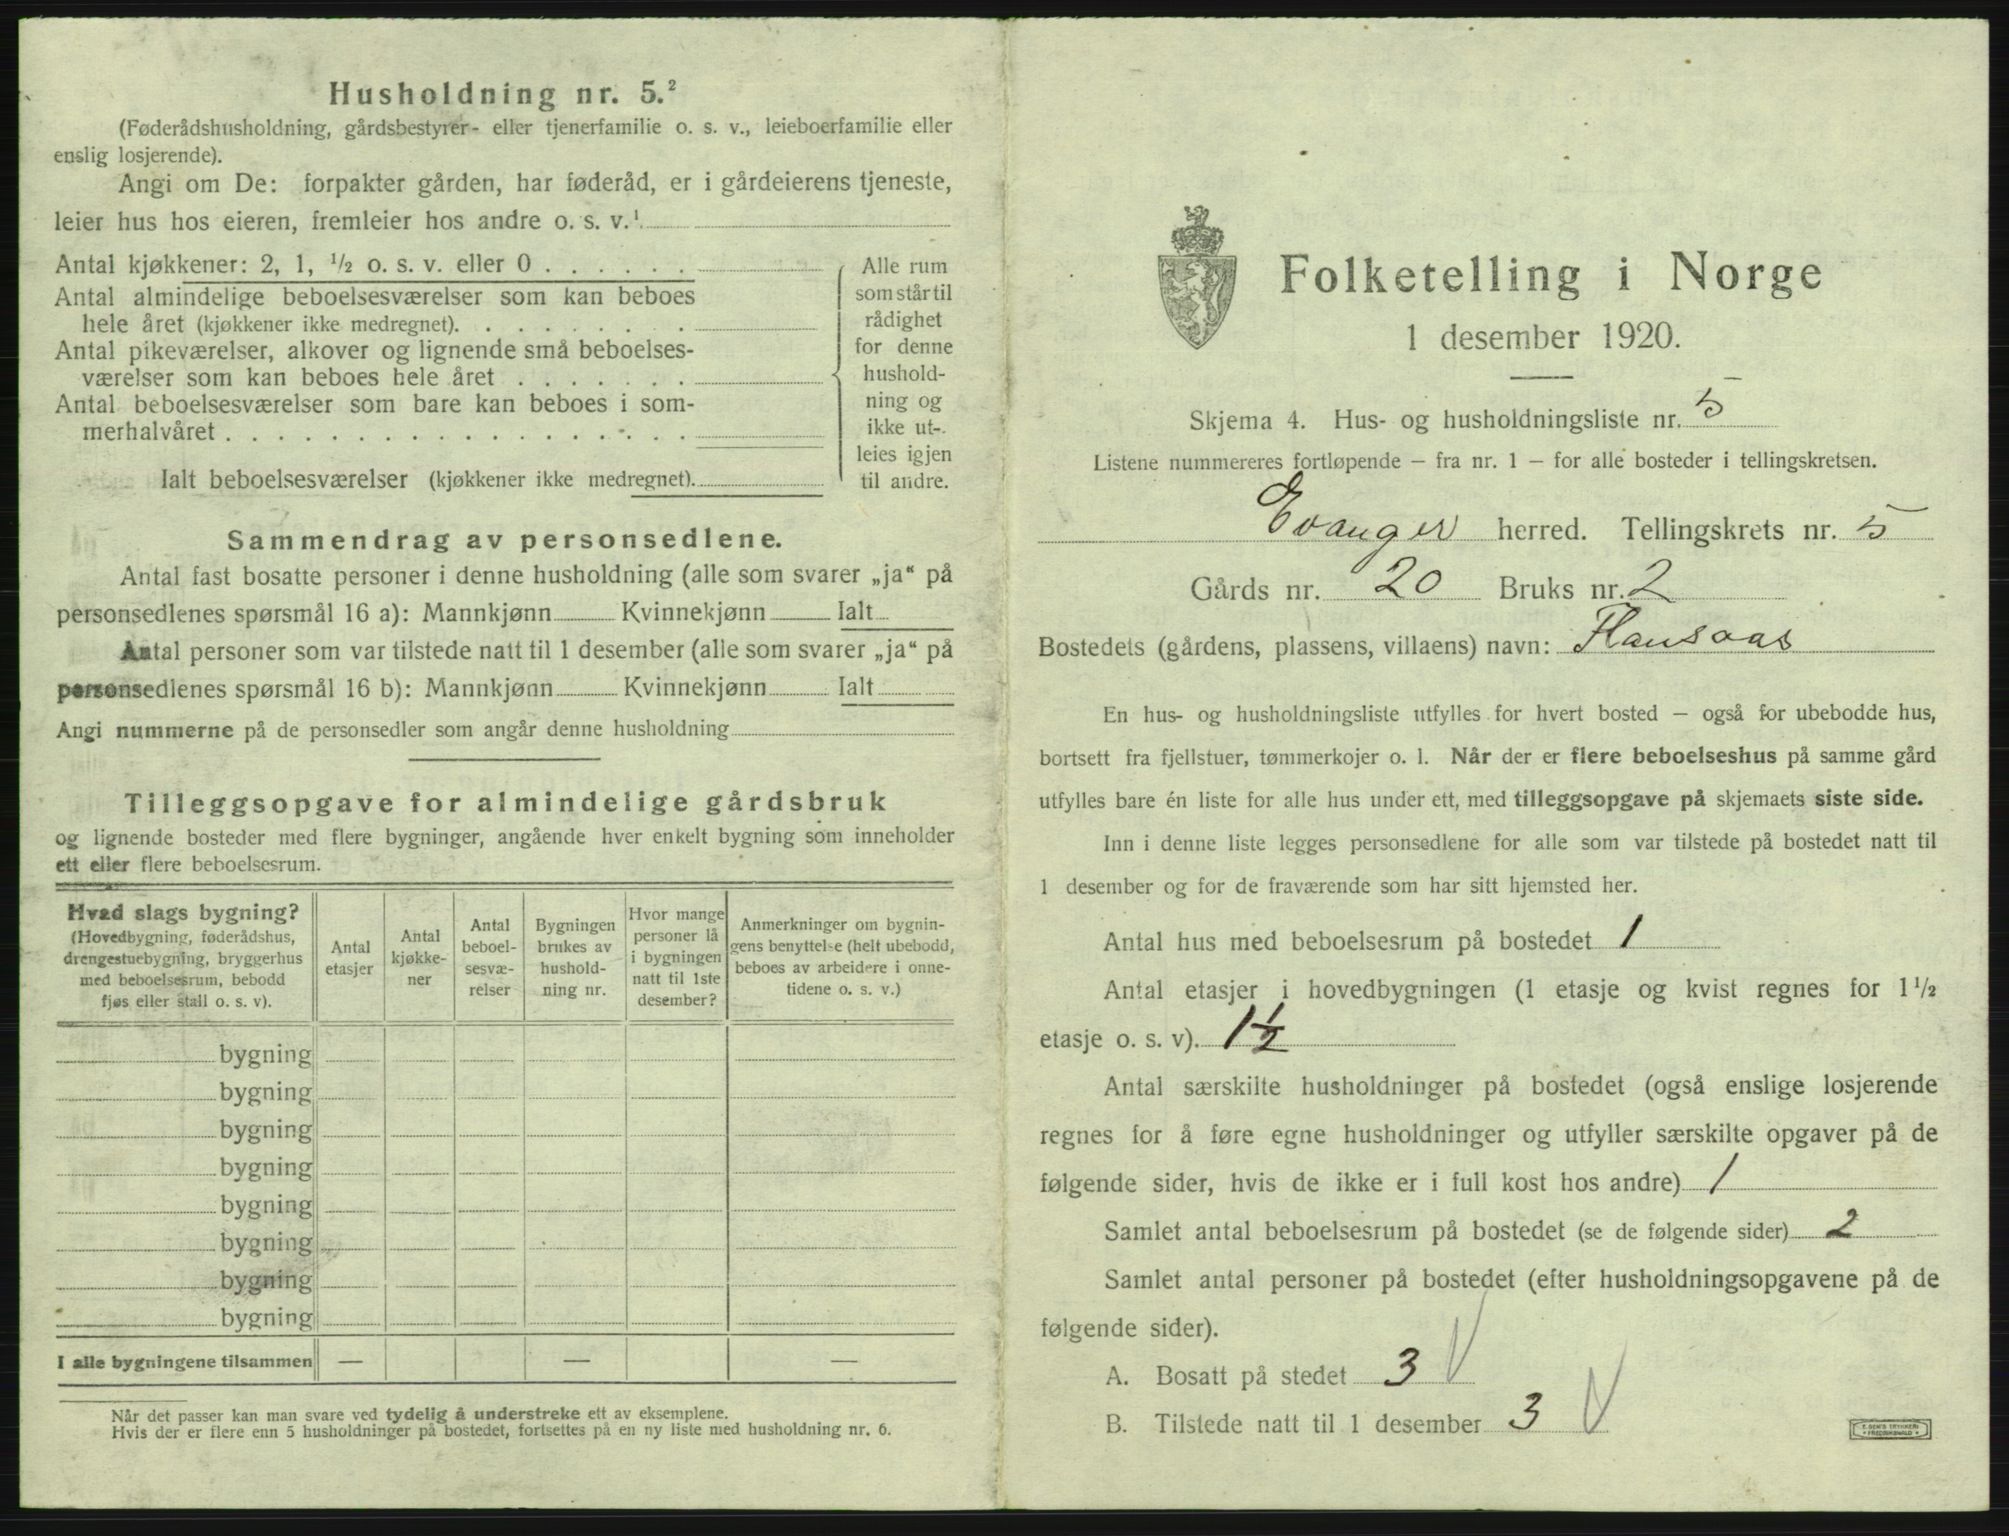 Husholdning nr. 5.²
(Føderådshusholdning, gårdsbestyrer- eller tjenerfamilie o. s. v., leieboerfamilie eller
enslig losjerende).
Angi om De: forpakter gården, har føderåd, er i gårdeierens tjeneste,
leier hus hos eieren, fremleier hos andre o. s. v.¹
Antal kjøkkener: 2, 1, ½ o. s. v. eller 0 . . . . . .
Antal almindelige beboelsesværelser som kan beboes
hele året (kjøkkener ikke medregnet). . . . . . . . .
Antal pikeværelser, alkover og lignende små beboelses-
værelser som kan beboes hele året . . . . . . .
Antal beboelsesværelser som bare kan beboes i som-
merhalvåret . . . . . . . . . . . . . . . . .
Ialt beboelsesværelser (kjøkkener ikke medregnet).
Alle rum
som står til
rådighet
for denne
hushold-
ning og
ikke ut-
leies igjen
til andre.
Sammendrag av personsedlene.
Antal fast bosatte personer i denne husholdning (alle som svarer „ja“ på
personsedlenes spørsmål 16 a): Mannkjønn Kvinnekjønn Ialt
Antal personer som var tilstede natt til 1 desember (alle som svarer „ja“ på
personsedlenes spørsmål 16 b): Mannkjønn Kvinnekjønn Ialt
Angi nummerne på de personsedler som angår denne husholdning
Tilleggsopgave for almindelige gårdsbruk
og lignende bosteder med flere bygninger, angående hver enkelt bygning som inneholder
ett eller flere beboelsesrum.
Hvad slags bygning?
(Hovedbygning, føderådshus,
drengestuebygning, bryggerhus
med beboelsesrum, bebodd
fjøs eller stall o. s. v).
Antal
etasjer
Antal
kjøkke-
ner
Antal
beboel-
sesvæ-
relser
Bygningen
brukes av
hushold-
ning nr.
Hvor mange
personer lå
i bygningen
natt til 1ste
desember?
Anmerkninger om bygnin-
gens benyttelse (helt ubebodd,
beboes av arbeidere i onne-
tidene o. s. v.)
bygning
bygning
bygning
bygning
bygning
bygning
bygning
bygning
I alle bygningene tilsammen — — —
Når det passer kan man svare ved tydelig å understreke ett av eksemplene.
Hvis der er flere enn 5 husholdninger på bostedet, fortsettes på en ny liste med husholdning nr. 6.
Folketelling i Norge
1 desember 1920.
Skjema 4. Hus- og husholdningsliste nr. 5
Listene nummereres fortløpende – fra nr. 1 – for alle bosteder i tellingskretsen.
Evanger herred. Tellingskrets nr. 5
Gårds nr. 20 Bruks nr. 2
Bostedets (gårdens, plassens, villaens) navn: Flansaas
En hus- og husholdningsliste utfylles for hvert bosted – også for ubebodde hus,
bortsett fra fjellstuer, tømmerkojer o. l. Når der er flere beboelseshus på samme gård
utfylles bare én liste for alle hus under ett, med tilleggsopgave på skjemaets siste side.
Inn i denne liste legges personsedlene for alle som var tilstede på bostedet natt til
1 desember og for de fraværende som har sitt hjemsted her.
Antal hus med beboelsesrum på bostedet 1
Antal etasjer i hovedbygningen (1 etasje og kvist regnes for 1½
etasje o. s. v). 1½
Antal særskilte husholdninger på bostedet (også enslige losjerende
regnes for å føre egne husholdninger og utfyller særskilte opgaver på de
følgende sider, hvis de ikke er i full kost hos andre) 1
Samlet antal beboelsesrum på bostedet (se de følgende sider) 2
Samlet antal personer på bostedet (efter husholdningsopgavene på de
følgende sider).
A. Bosatt på stedet 3
B. Tilstede natt til 1 desember 3